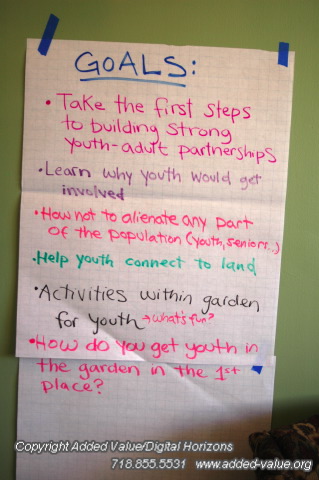 GOALS:
• Take the first steps
to building strong
youth-adult partnerships
• Learn why youth would get
involved
• How not to alienate any part
of the population (youth, seniors...)
• Help youth connect to land
• Activities within garden
for youth → what's fun?
• How do you get youth in
the garden in the 1st
place?
Copyright Added Value/Digital Horizons
718.855.5531 www.added-value.org